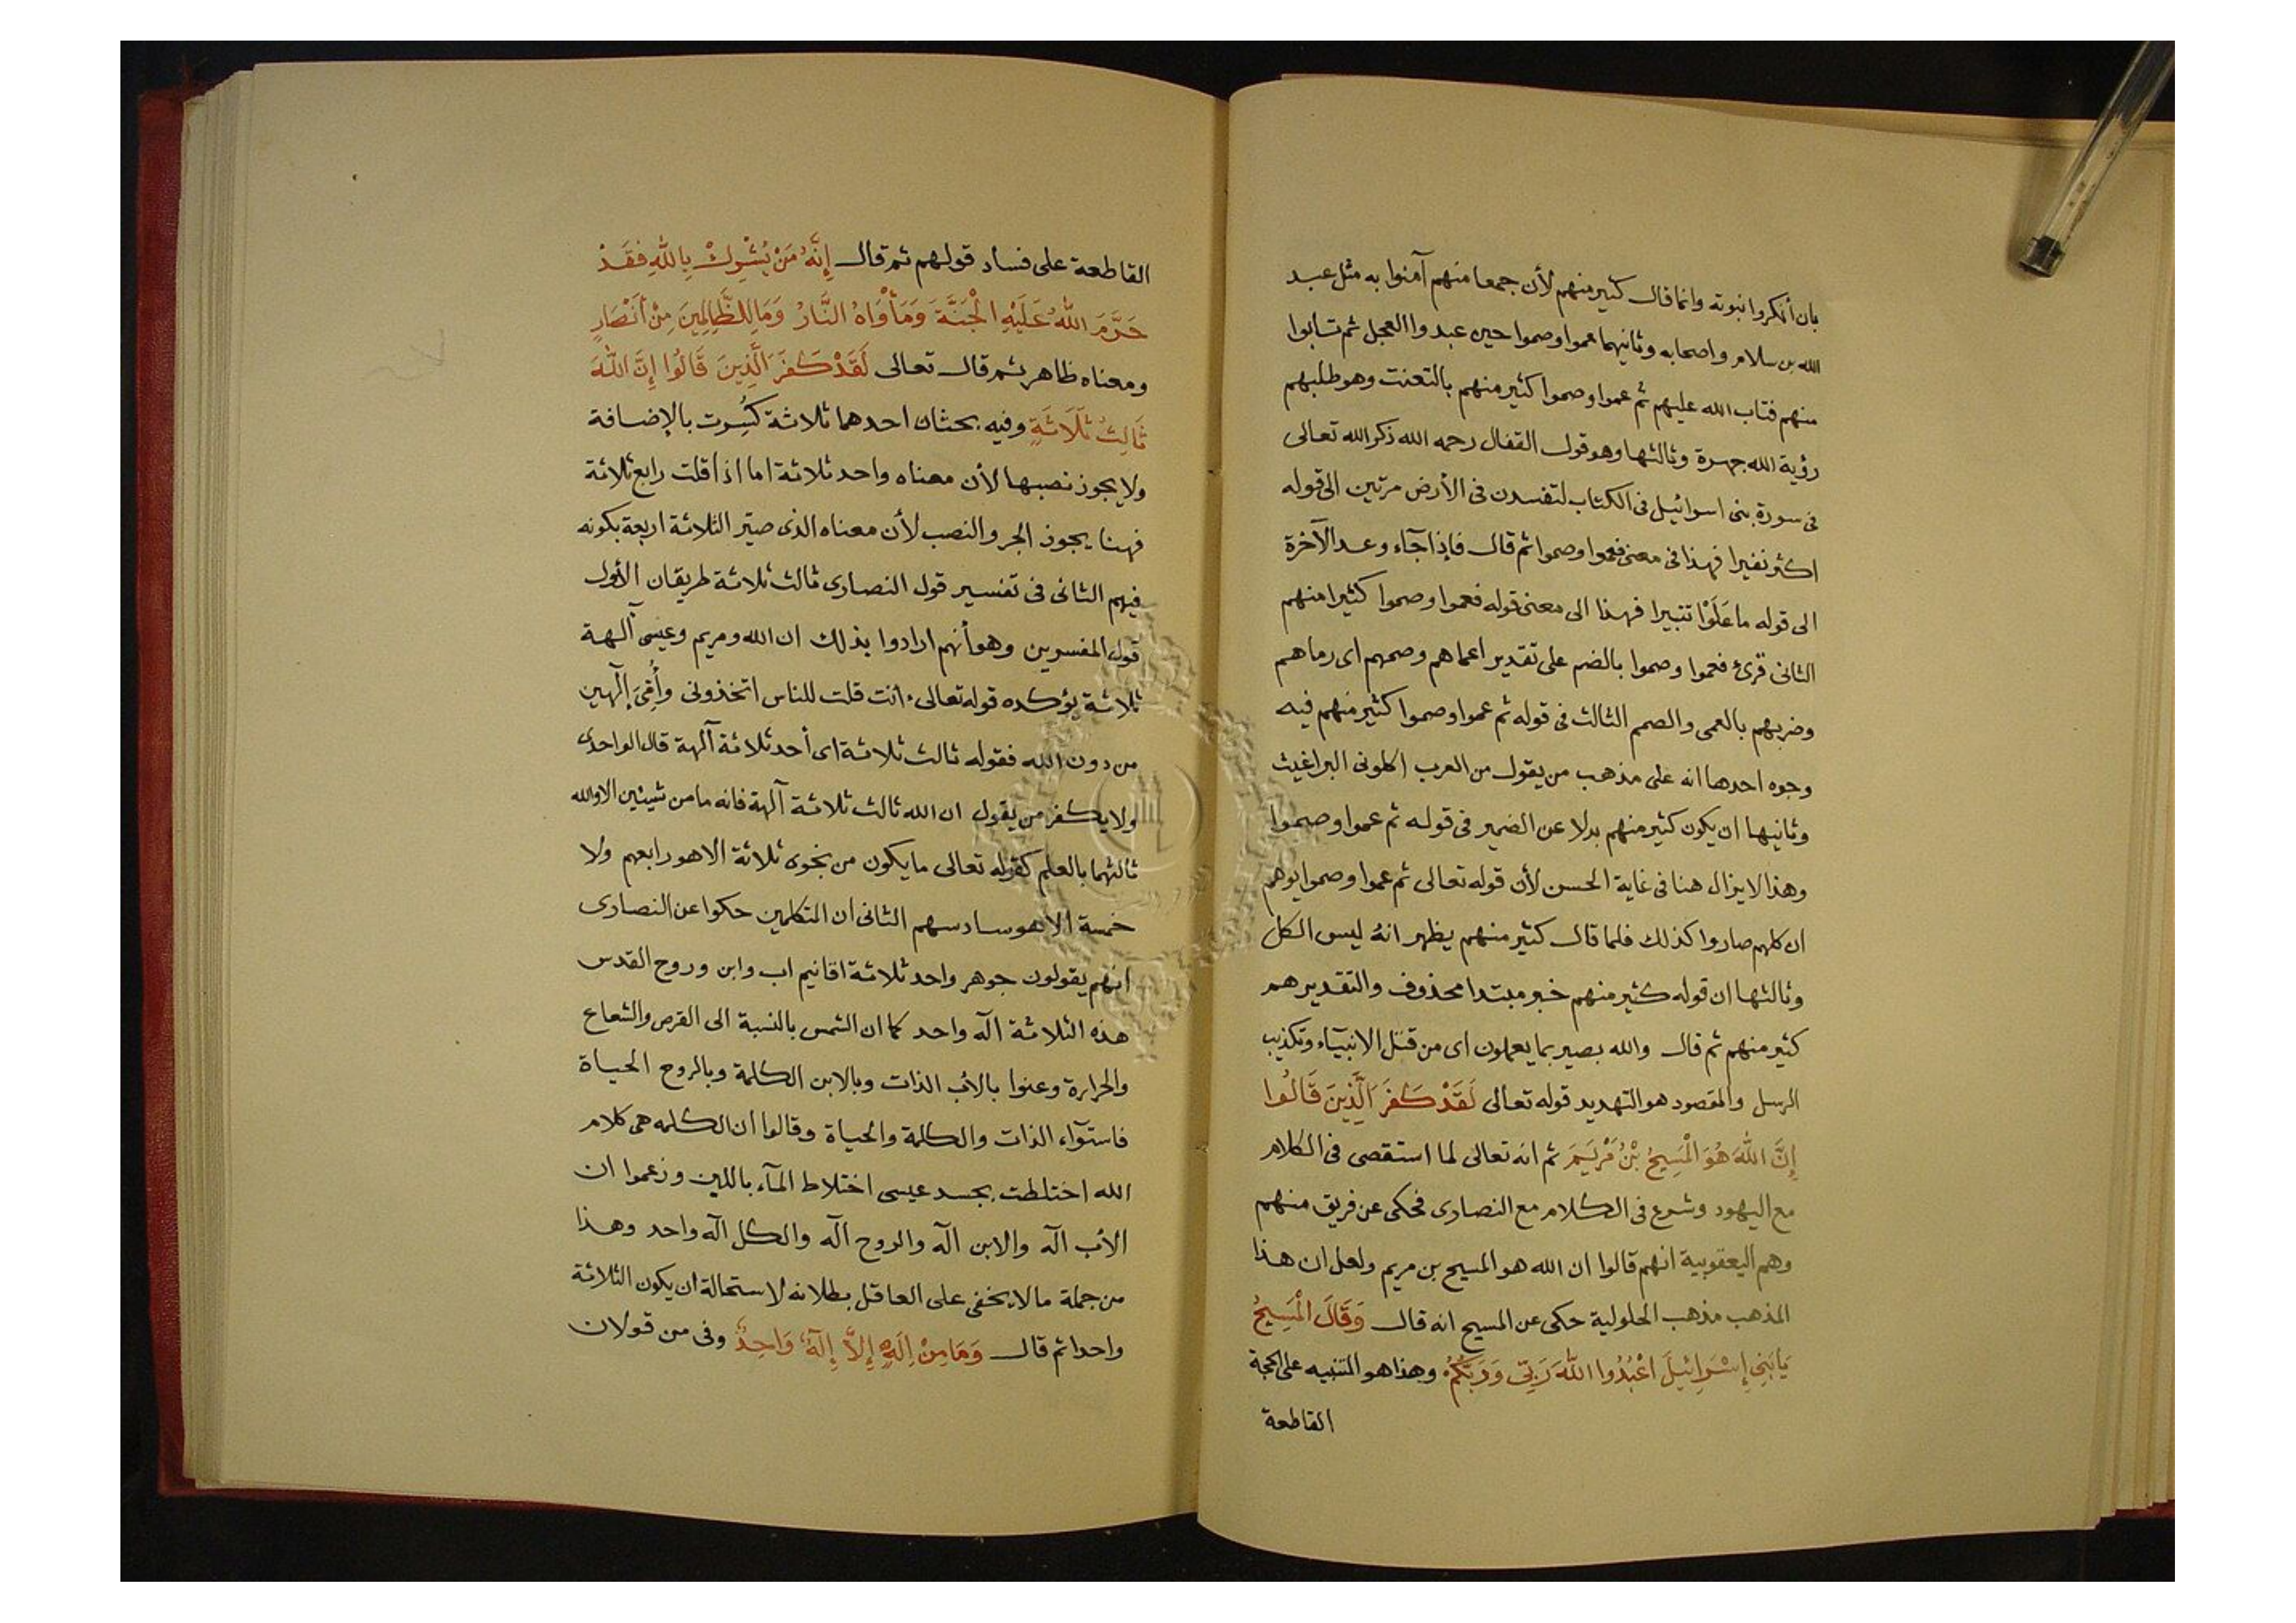 بان أنكروا نبوته وانما قال كثير منهم لأن جمعا منهم آمنوا به مثل عبد
الله بن سلام واصحابه وثانيهما عموا وصموا حين عبدوا العجل ثم تابوا
منهم فتاب الله عليهم ثم عموا وصموا كثير منهم بالتعنت وهو طلبهم
رؤية الله جهرة وثالثها وهو قول القفال رحمه الله ذكر الله تعالى
فى سورة بنى اسرائيل فى الكتاب لتفسدن فى الأرض مرتين الى قوله
اكثر نفيرا فهذا فى معنى فعموا وصموا ثم قال فإذا جآء وعد الآخرة
الى قوله ما عَلَوْا تتبيرا فهذا الى معنى قوله فعموا وصموا كثيرا منهم
الثانى قرئ فعموا وصموا بالضم على تقدير اعماهم وصمهم اى رماهم
وضربهم بالعمى والصمم الثالث فى قوله ثم عموا وصموا كثير منهم فيه
وجوه احدها انه على مذهب من يقول من العرب اكلونى البراغيث
وثانيها ان يكون كثير منهم بدلا عن الضمير فى قوله ثم عموا وصموا
وهذا الابدال هنا فى غاية الحسن لأن قوله تعالى ثم عموا وصموا يوهم
ان كلهم صاروا كذلك فلما قال كثير منهم يظهر انهُ ليس الكل
وثالثها ان قوله كثير منهم خبر مبتدا محذوف والتقدير هم
كثير منهم ثم قال والله بصير بما يعملون اى من قتل الانبيآء وتكذيب
الرسل والمقصود هو التهديد قوله تعالى لَقَدْ كَفَرَ الَّذِينَ قَالُوا
إِنَّ اللهَ هُوَ الْمَسِيحُ بْنُ مَرْيَمَ ثم انه تعالى لما استقصى فى الكلام
مع اليهود وشرع فى الكلام مع النصارى فحكى عن فريق منهم
وهم اليعقوبية انهم قالوا ان الله هو المسيح بن مريم ولعل ان هذا
المذهب مذهب الحلولية حكى عن المسيح انه قال وَقَالَ الْمَسِيحُ
يَابَنِى إِسْرَائِيلَ اعْبُدُوا اللهَ رَبِّى وَرَبَّكُمْ وهذا هو التنبيه على الحجة
القاطعة
القاطعة على فساد قولهم ثم قال إِنَّهُ مَنْ يُشْرِكْ بِاللهِ فَقَدْ
حَرَّمَ اللهُ عَلَيْهِ الْجَنَّةَ وَمَأْوَاهُ النَّارُ وَمَا لِلظَّالِمِينَ مِنْ أَنْصَارٍ
ومعناه ظاهر ثم قال تعالى لَقَدْ كَفَرَ الَّذِينَ قَالُوا إِنَّ اللهَ
ثَالِثُ ثَلَاثَةٍ وفيه بحثان احدهما ثلاثة كُسِرت بالإضافة
ولا يجوز نصبها لأن معناه واحد ثلاثة اما اذا قلت رابع ثلاثة
فهنا يجوز الجر والنصب لأن معناه الذى صيّر الثلاثة اربعة بكونه
فيهم الثانى فى تفسير قول النصارى ثالث ثلاثة طريقان الأول
قول المفسرين وهو أنهم ارادوا بذلك ان الله ومريم وعيسى آلهة
ثلاثة يؤكده قوله تعالى ءانت قلت للناس اتخذونى وأُمّىَ إلٓهين
من دون الله فقوله ثالث ثلاثة اى أحد ثلاثة آلهة قال الواحدى
ولا يكفر من يقول ان الله ثالث ثلاثة آلهة فانه ما من شيئين الا والله
ثالثهما بالعلم كقوله تعالى ما يكون من نجوى ثلاثة الا هو رابعهم ولا
خمسة الا هو سادسهم الثانى ان المتكلمين حكوا عن النصارى
انهم يقولون جوهر واحد ثلاثة اقانيم اب وابن وروح القدس
هذه الثلاثة الٓه واحد كما ان الشمس بالنسبة الى القرص والشعاع
والحرارة وعنوا بالأب الذات وبالابن الكلمة وبالروح الحياة
فاستوآء الذات والكلمة والحياة وقالوا ان الكلمه هى كلام
الله اختلطت بجسد عيسى اختلاط المآء باللبن وزعموا ان
الأب الٓه والابن الٓه والروح الٓه والكل الٓه واحد وهذا
من جملة ما لا يخفى على العاقل بطلانه لاستحالة ان يكون الثلاثة
واحدا ثم قال وَمَا مِنْ اِلَهٍ إِلاَّ إِلَهٌ وَاحِدٌ وفى من قولان